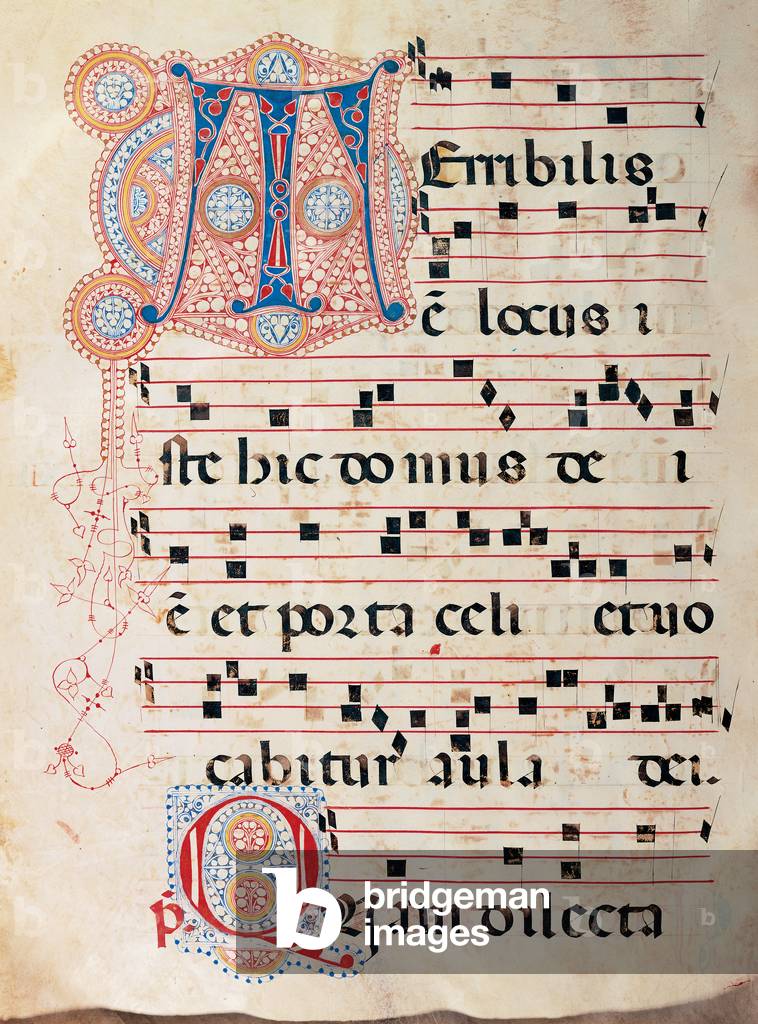 TErribilis
ē locus i
ste hic domus dei
ē et porta celi et uo
cabitur aula dei.
p̄. Quam dilecta
bridgeman
images